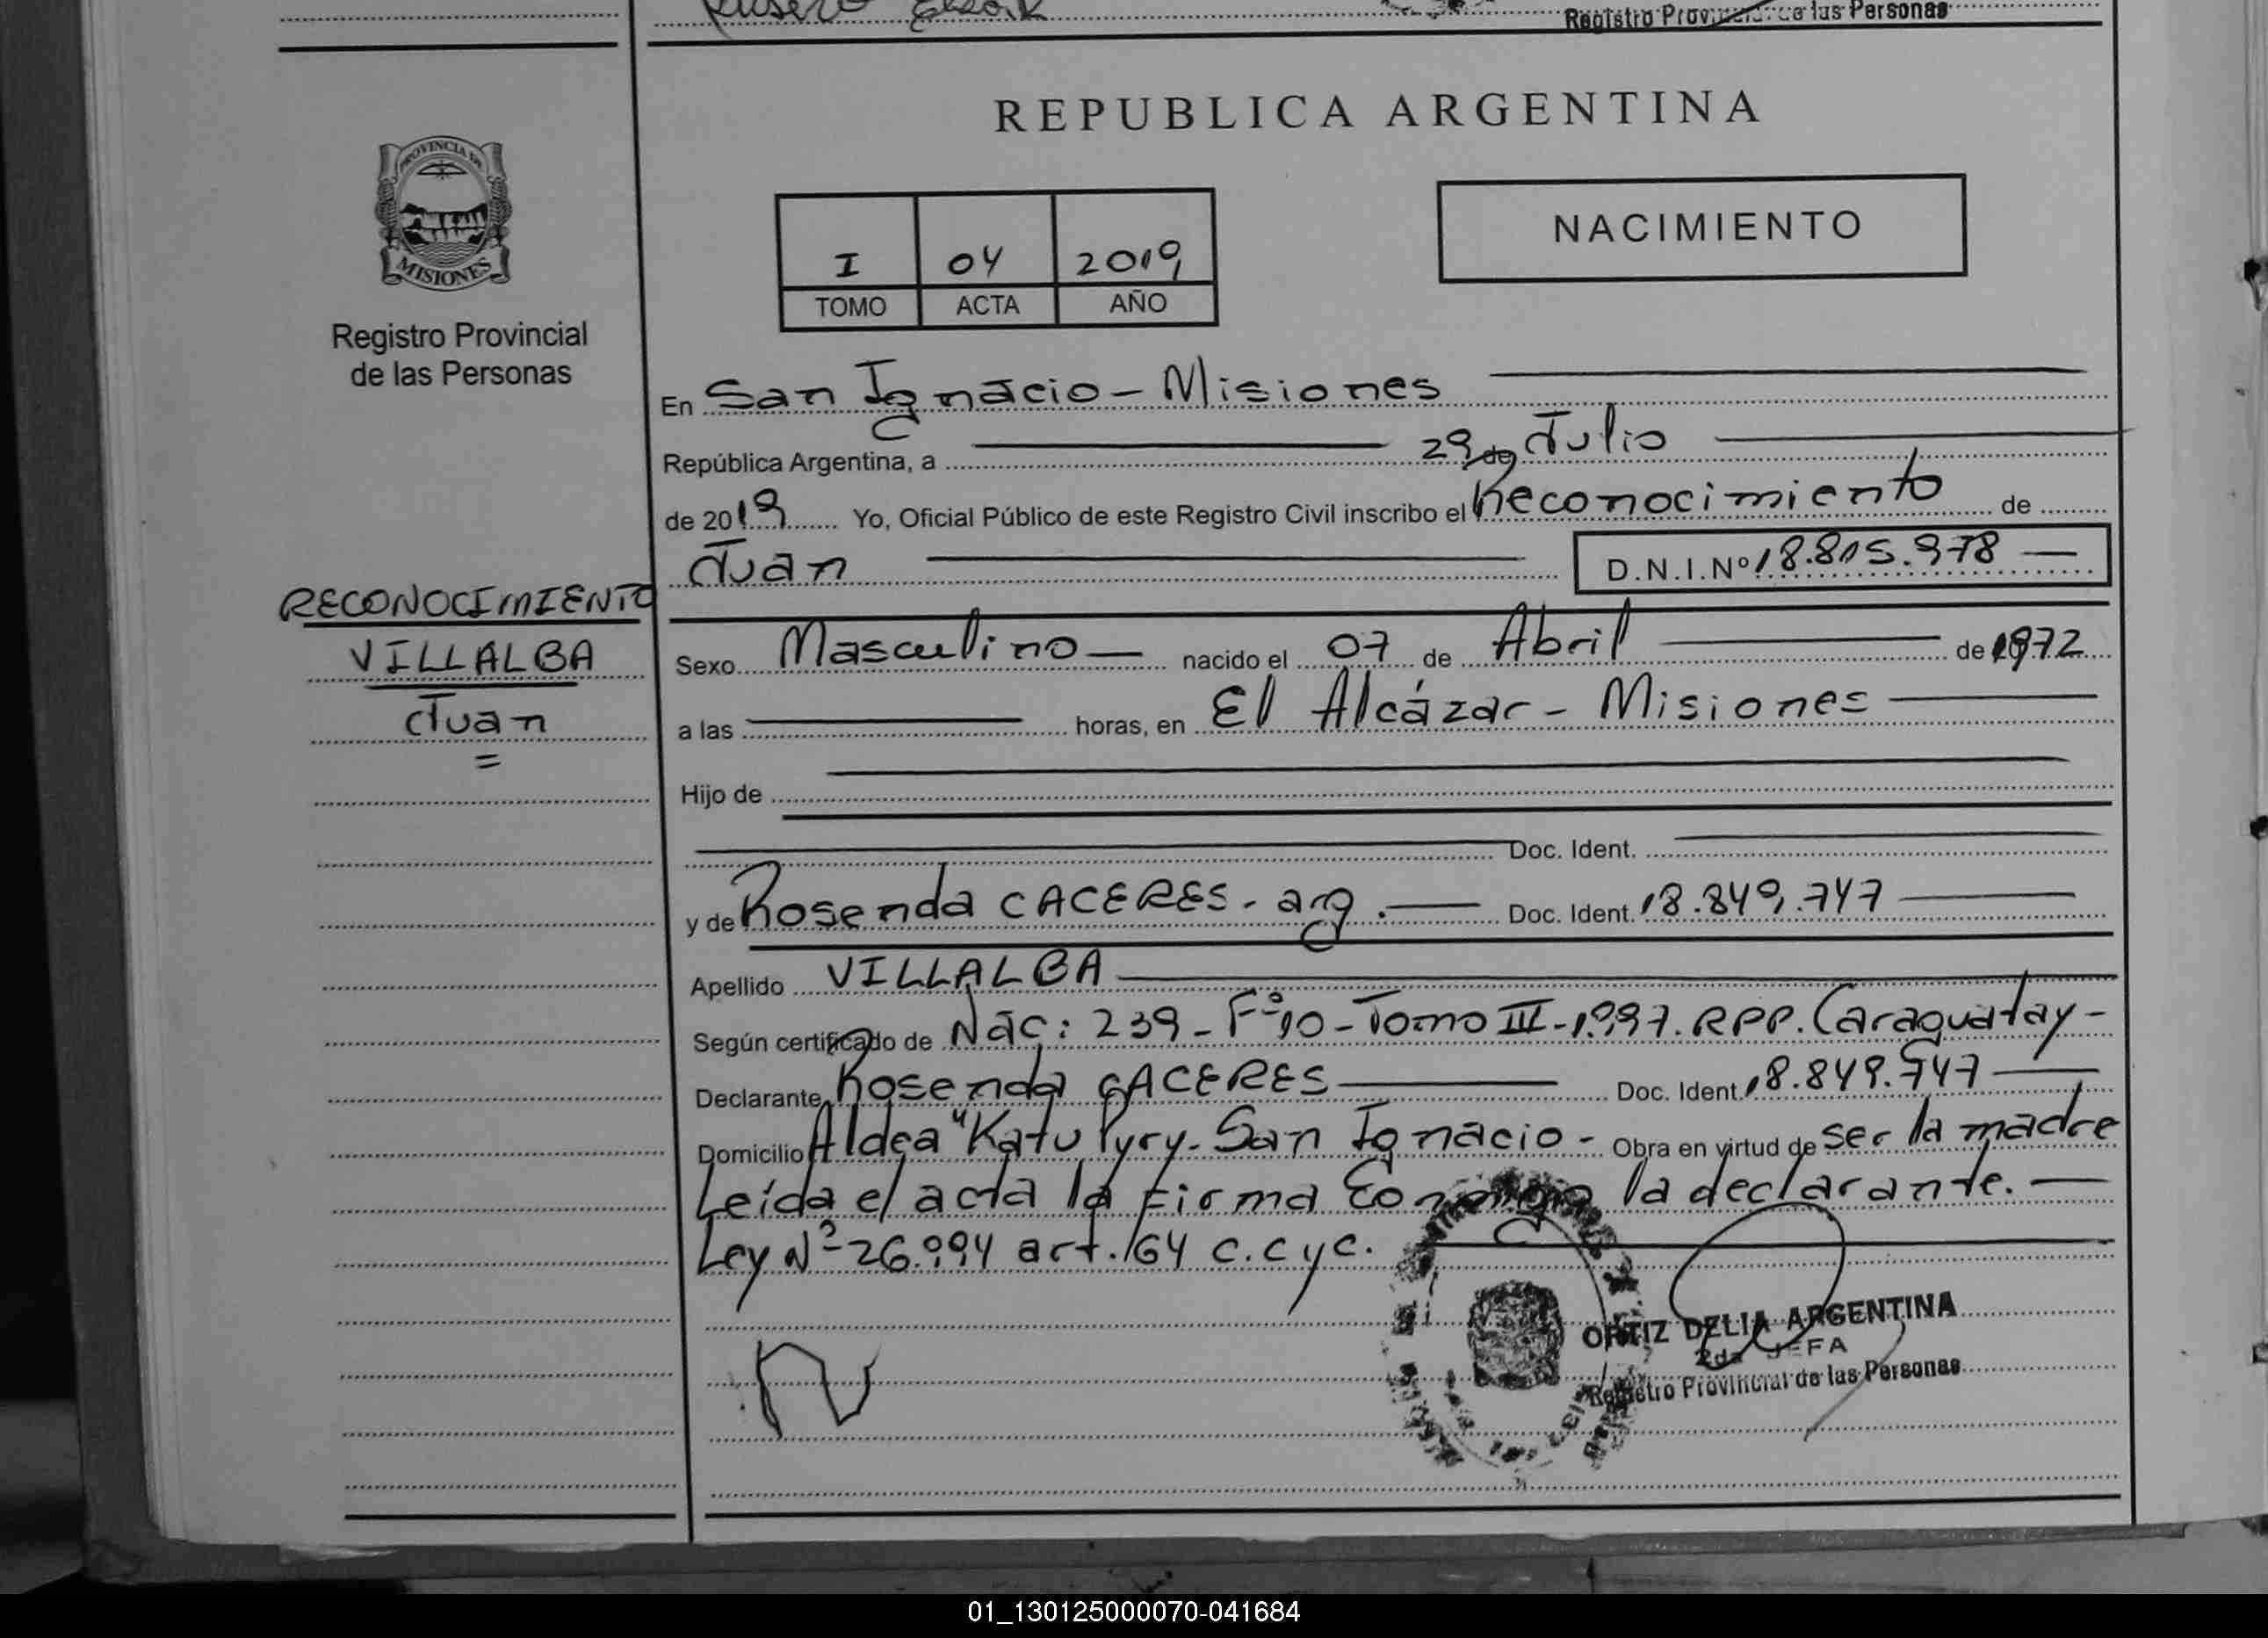 Registro Provincial de las Personas
REPUBLICA ARGENTINA
PROVINCIA DE
MISIONES
Registro Provincial
de las Personas
I 04 2019
TOMO ACTA AÑO
NACIMIENTO
En San Ignacio - Misiones
República Argentina, a 29 de Julio
de 2019 Yo, Oficial Público de este Registro Civil inscribo el Reconocimiento de
Juan D.N.I.Nº 18.815.978
RECONOCIMIENTO
VILLALBA
Juan
=
Sexo Masculino nacido el 07 de Abril de 1972
a las horas, en El Alcázar - Misiones
Hijo de
Doc. Ident.
y de Rosenda CACERES - arg. Doc. Ident. 18.849.747
Apellido VILLALBA
Según certificado de Nac: 239 - Fº 10 - Tomo III - 1.997. RPP. Caraguatay -
Declarante Rosenda CACERES Doc. Ident. 18.849.747
Domicilio Aldea "Katu Pyry - San Ignacio - Obra en virtud de ser la madre
Leída el acta la Firma Conmigo la declarante.
Ley Nº 26.994 art. 164 C.C y C.
ORTIZ DELIA ARGENTINA
2da JEFA
Registro Provincial de las Personas
01_130125000070-041684